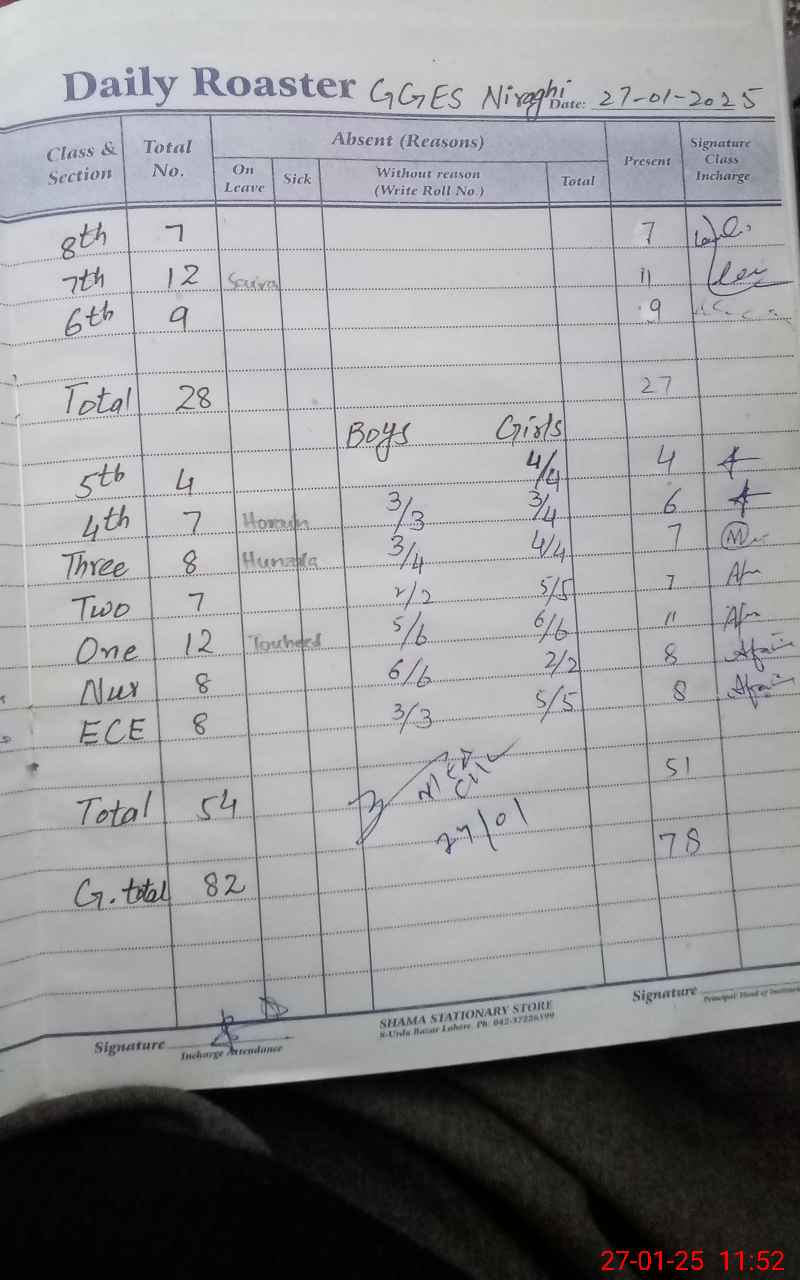 Daily Roaster GGES Niraghi Date: 27-01-2025
Class & Section Total No. Absent (Reasons) Present Signature Class Incharge
On Leave Sick Without reason (Write Roll No.) Total
8th 7 7
7th 12 Saira 11
6th 9 9
Total 28 27
Boys Girls
5th 4 4/4 4
4th 7 3/3 3/4 6
Three 8 3/4 4/4 7
Two 7 2/2 5/5 7
One 12 Touheed 5/6 6/6 11
Nur 8 6/6 2/2 8
ECE 8 3/3 5/5 8
Total 54 51
27/01
G.total 82 78
Signature Incharge Attendance
SHAMA STATIONARY STORE
8-Urdu Bazar Lahore. Ph: 042-37226399
Signature Principal/Head of
27-01-25 11:52